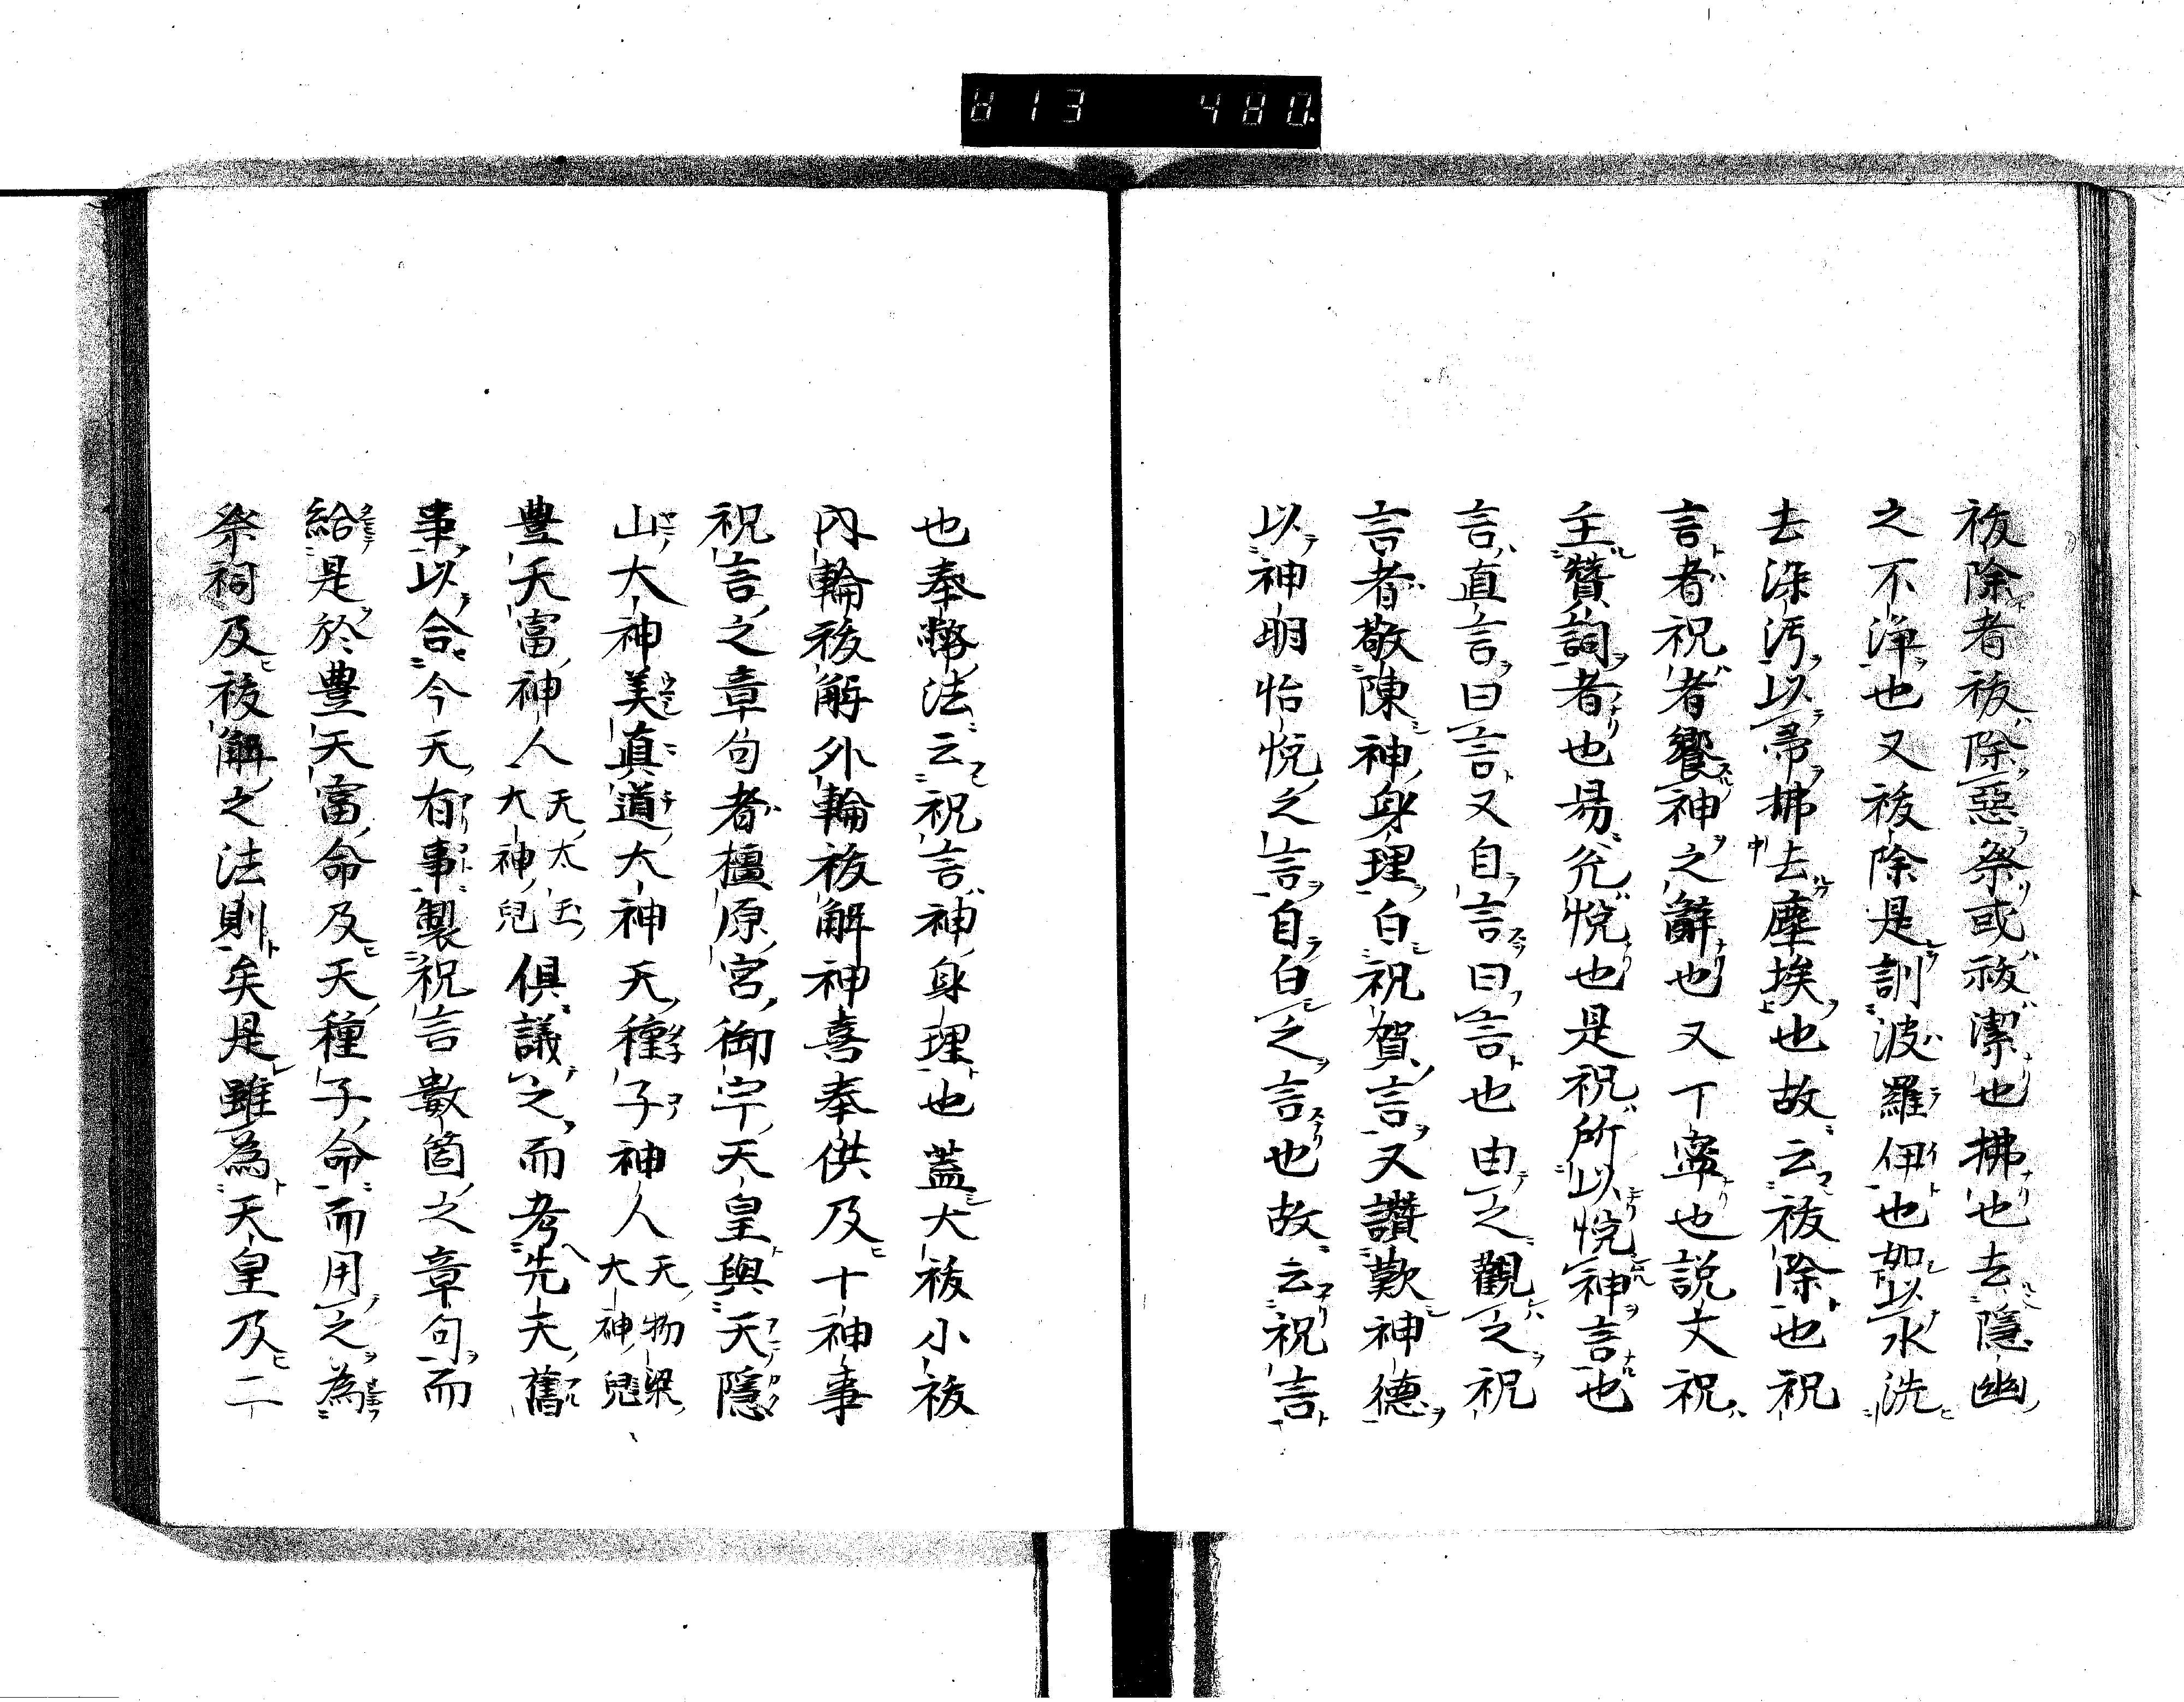 813 480
祓除者祓除惡祭或祓潔也拂也去隱幽
之不淨也又祓除是訓波羅伊也如以水洗
去染汚以帚拂去塵埃也故云祓除也祝
言者祝者饗神之辭也又丁寧也說文祝
主贊詞者也易兊悅也是祝所以悅神言也
言直言曰言又自言曰言也由之觀之祝
言者敬陳神身理白祝賀言又讚歎神德
以神明怡悅之言自白之言也故云祝言
也奉幣法云祝言神身理也蓋大祓小祓
內輪祓解外輪祓解神喜奉供及十神事
祝言之章句者橿原宮御宇天皇與天隱
山大神美真道大神天種子神人天物梁大神兒
豊天富神人天太玉大神兒俱議之而考先天舊
事以合今天有事製祝言數箇之章句而
給是於豊天富命及天種子命而用之為
祭祠及祓解之法則矣是雖為天皇及二